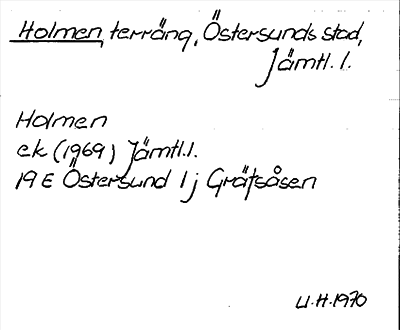 Holmen, terräng, Östersunds stad,
Jämtl. l.
Holmen
ek (1969) Jämtl.l.
19 E Östersund 1 j Gräfsåsen
U.H. 1970